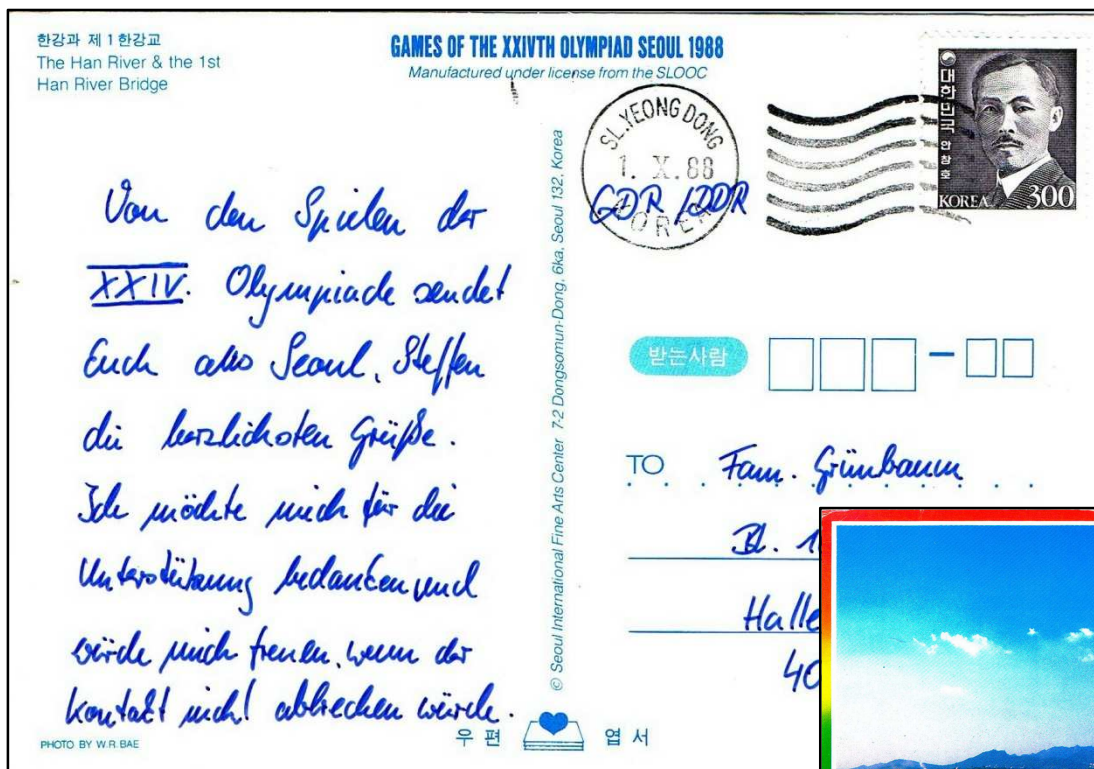 한강과 제1한강교
The Han River & the 1st
Han River Bridge
GAMES OF THE XXIVTH OLYMPIAD SEOUL 1988
Manufactured under license from the SLOOC
SL.YEONG DONG
1. X.88
KOREA
대한민국 안창호
KOREA 300
GDR/DDR
Von den Spielen der
XXIV. Olympiade sendet
Euch aus Seoul, Steffen
die herzlichsten Grüße.
Ich möchte mich für die
Unterstützung bedanken und
würde mich freuen, wenn der
Kontakt nicht abbrechen würde.
PHOTO BY W.R.BAE
© Seoul International Fine Arts Center 7-2 Dongsomun-Dong, 6ka, Seoul 132, Korea
받는사람
TO Fam. Grünbaum
Bl. 1
Halle
40
우편 엽서